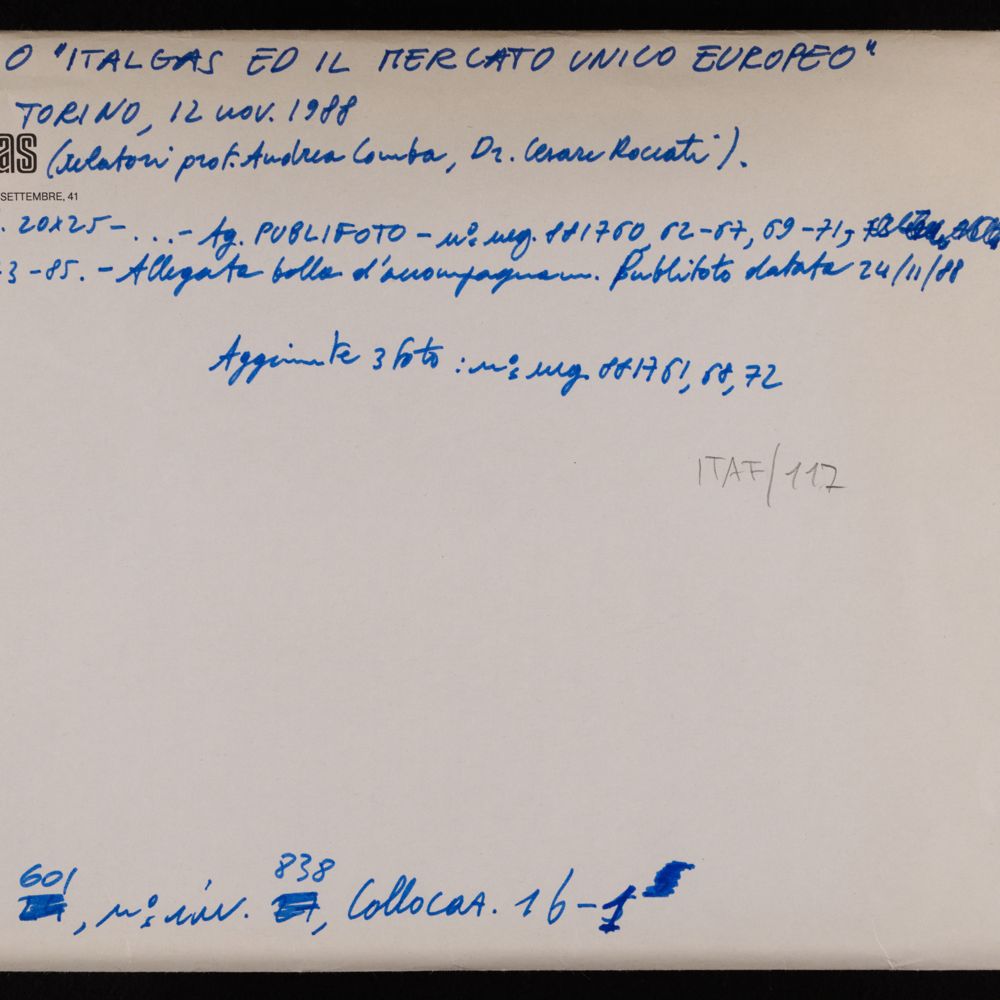 O "ITALGAS ED IL MERCATO UNICO EUROPEO"
TORINO, 12 nov. 1988
as (relatori prof. Andrea Comba, Dr. Cesare Roccati).
SETTEMBRE, 41
. 20x25 - ... - Ag. PUBLIFOTO - n.i neg. 881760, 62-67, 69-71,
3-85. - Allegata bolla d'accompagnam. Publifoto datata 24/11/88
Aggiunte 3 foto : n.i neg. 881761, 68, 72
ITAF/117
601 838
, n.i inv. , Collocaz. 16-1